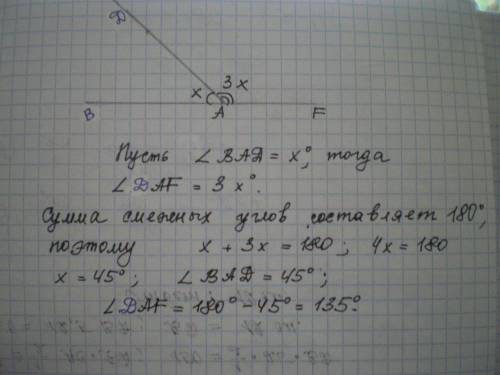 D
x 3x
B A F
Пусть ∠BAD = x°, тогда
∠DAF = 3x°.
Сумма смежных углов составляет 180°,
поэтому x + 3x = 180; 4x = 180
x = 45°; ∠BAD = 45°;
∠DAF = 180° - 45° = 135°.